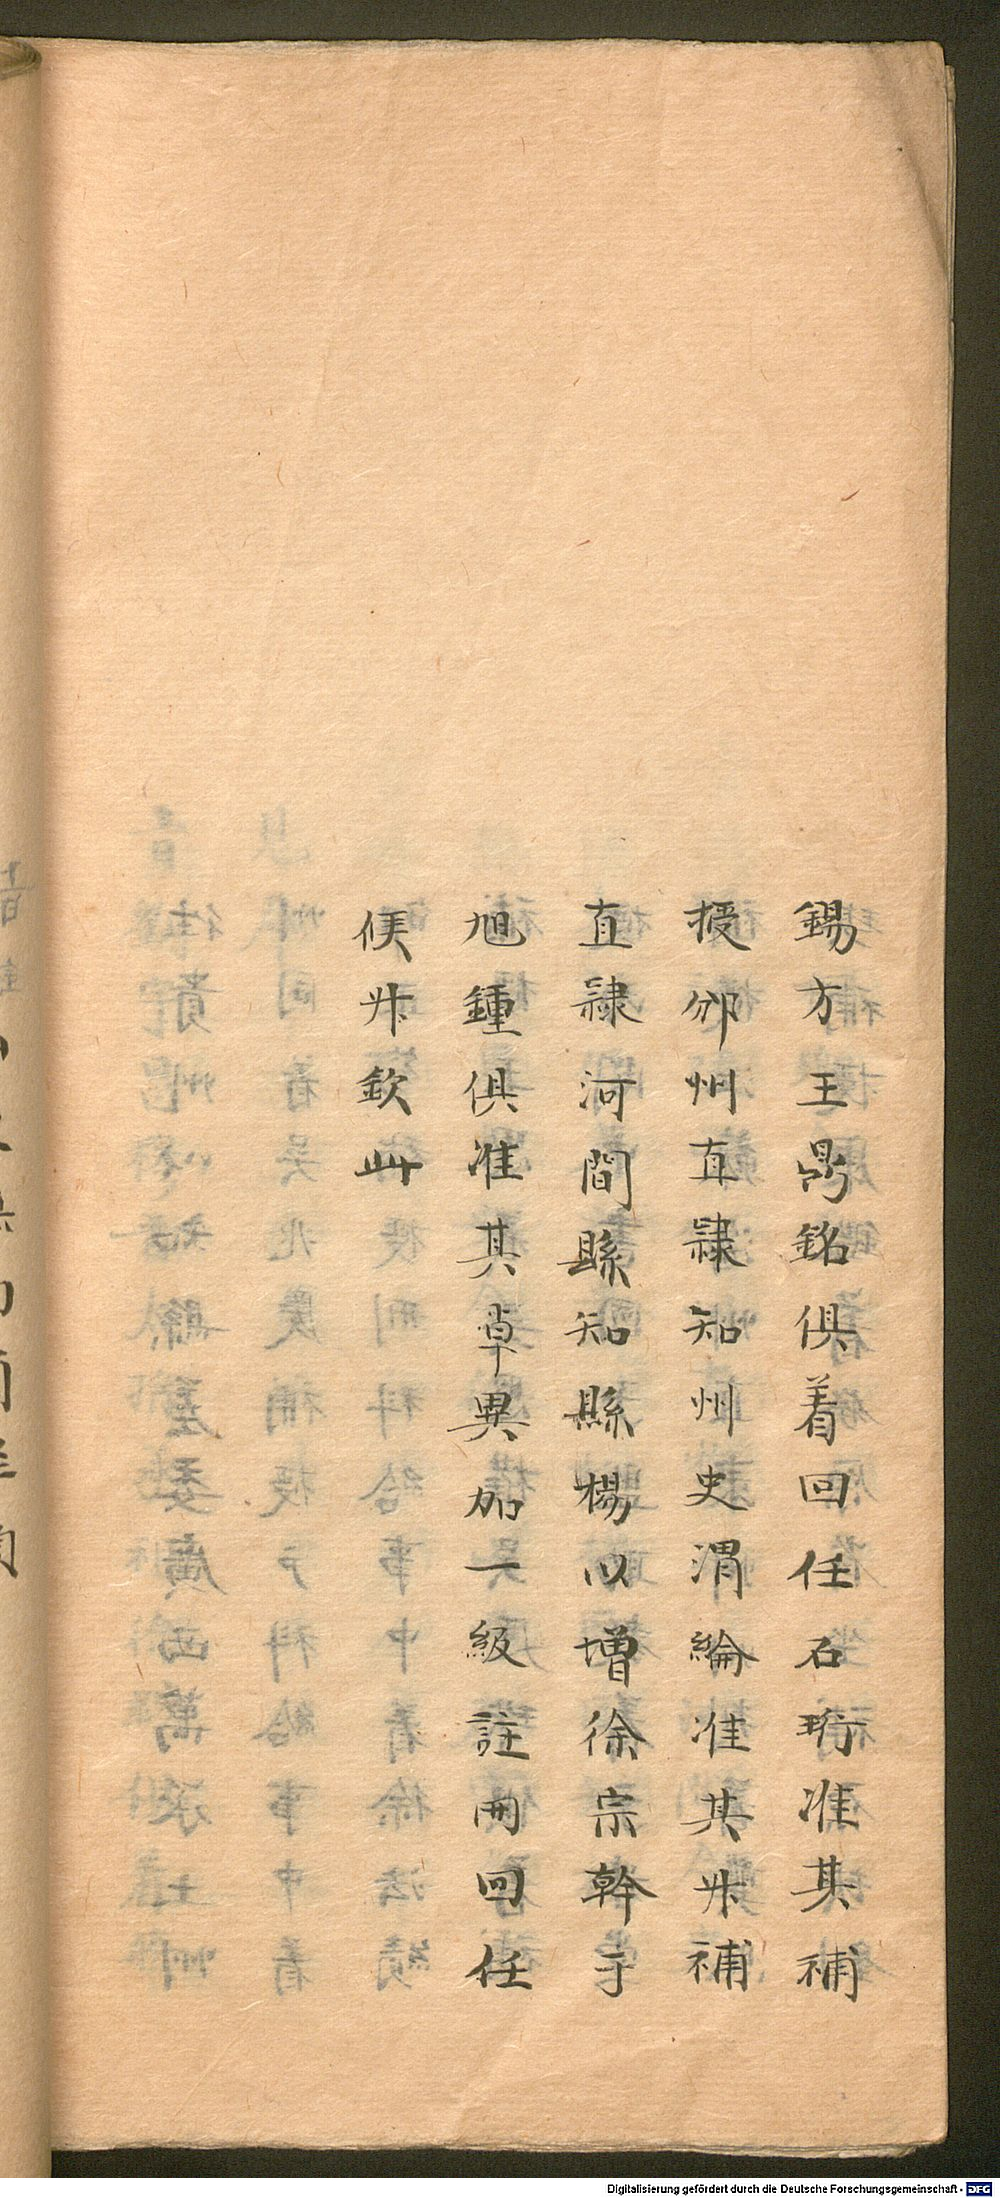 錫方王鼎銘俱着回任石珩准其補
授邠州直隸知州史渭綸准其升補
直隸河間縣知縣楊以增徐宗幹于
旭鍾俱准其卓異加一級註冊回任
候升欽此
Digitalisierung gefördert durch die Deutsche Forschungsgemeinschaft - DFG